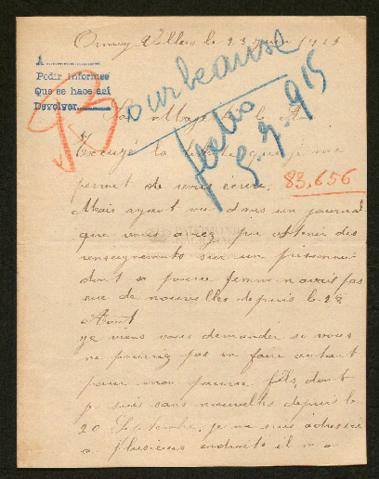 Ormoy Villers le 23 Juin 1915
A
Pedir informes
Que se hace así
Devolver
93
fecho
5.7.915
83,656
permet de vous écrire.
Mais ayant vu dans un journal
que vous aviez pu obtenir des
renseignements sur un prisonnier
dont sa pauvre femme n avais pas
eue de nouvelles depuis le 28
Août
je viens vous demander si vous
ne pourriez pas en faire autant
pour mon pauvre fils, dont
je suis sans nouvelles depuis le
20 Septembre, je me suis adressée
a plusieurs endroits il m a